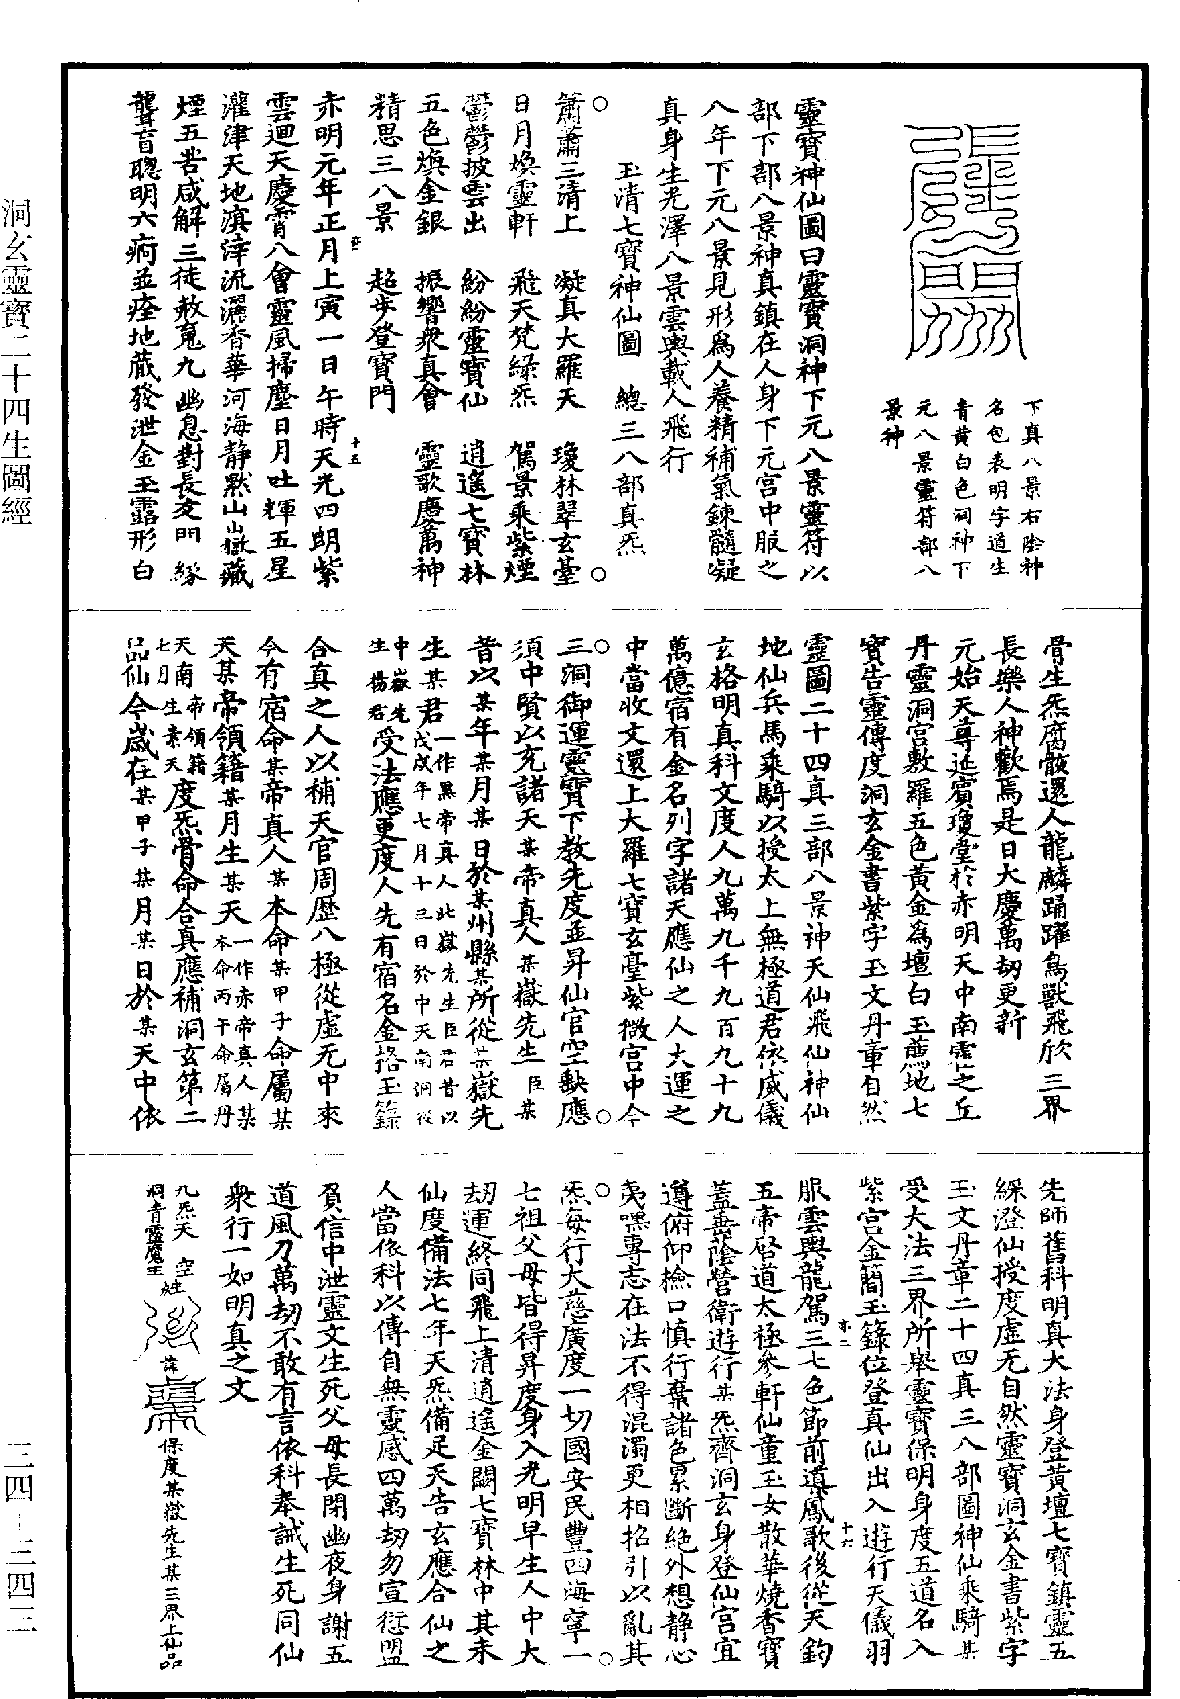 洞玄靈寶二十四生圖經
下真八景右陰神
名包表明字道生
青黃白色洞神下
元八景靈符部八
景神
靈寶神仙圖曰靈寶洞神下元八景靈符以
部下部八景神真鎮在人身下元宮中服之
八年下元八景見形爲人養精補氣鍊髓凝
真身生光澤八景雲輿載人飛行
玉清七寶神仙圖 總三八部真炁
簫蕭三清上 凝真大羅天 瓊林翠玄臺
日月煥靈軒 飛天梵綠炁 駕景乘紫煙
鬱鬱披雲出 紛紛靈寶仙 逍遙七寶林
五色煥金銀 振響衆真會 靈歌慶萬神
精思三八景 超步登寶門
赤明元年正月上寅一日午時天光四朗紫
雲迴天慶霄八會靈風掃塵日月吐輝五星
灌津天地滇涬流灑香華河海静默山嶽藏
煙五苦咸解三徒赦寃九幽息對長夜門 緣
聾盲聰明六痾並痊地藏發泄金玉露形白
骨生炁腐骸還人龍麟踊躍鳥獸飛欣三界
長樂人神歡焉是日大慶萬劫更新
元始天尊延賓瓊堂於赤明天中南雲之丘
丹靈洞宮敷羅五色黃金為壇白玉薦地七
寶告靈傳度洞玄金書紫字玉文丹章自然
靈圖二十四真三部八景神天仙飛仙神仙
地仙兵馬乘騎以授太上無極道君依威儀
玄格明真科文度人九萬九千九百九十九
萬億宿有金名列字諸天應仙之人大運之
中當收文還上大羅七寶玄臺紫微宮中今
三洞御運靈寶下教先度並昇仙官空缺應
須中賢以充諸天某帝真人某嶽先生臣某
昔以某年某月某日於某州縣某所從某嶽先
生某君一作黑帝真人北嶽先生臣君昔以戊戌年七月十三日於中天南洞從
中嶽先生楊君受法應更度人先有宿名金格玉籙
合真之人以補天官周歷八極從虛无中來
今有宿命某帝真人某本命某甲子命屬某
天某帝領籍某月生某天一作赤帝真人某本命丙午命屬丹
天南帝領籍七月生素天度炁骨命合真應補洞玄第二
品仙今歲在某甲子某月某日於某天中依
先師舊科明真大法身登黃壇七寶鎮靈五
綵澄仙授度虛无自然靈寶洞玄金書紫字
玉文丹章二十四真三八部圖神仙乘騎某
受大法三界所舉靈寶保明身度五道名入
紫宮金簡玉籙位登真仙出入遊行天儀羽
服雲輿龍駕三七色節前導鳳歌後從天鈞
五帝啓道太極參軒仙童玉女散華燒香寶
蓋垂蔭營衛遊行某炁齊洞玄身登仙宮宜
遵俯仰檢口慎行棄諸色累斷絶外想静心
夷嘿專志在法不得混濁更相掐引以亂其
炁每行大慈廣度一切國安民豐四海寧一
七祖父母皆得昇度身入光明早生人中大
劫運終同飛上清逍遙金闕七寶林中其未
仙度備法七年天炁備足天告玄應合仙之
人當依科以傳自無靈感四萬劫勿宣愆盟
負信中泄靈文生死父母長閉幽夜身謝五
道風刀萬劫不敢有言依科奉誡生死同仙
衆行一如明真之文
九炁天 空姓 諱 保度某嶽先生某三界上仙品
洞青靈魔王
三四－三四三